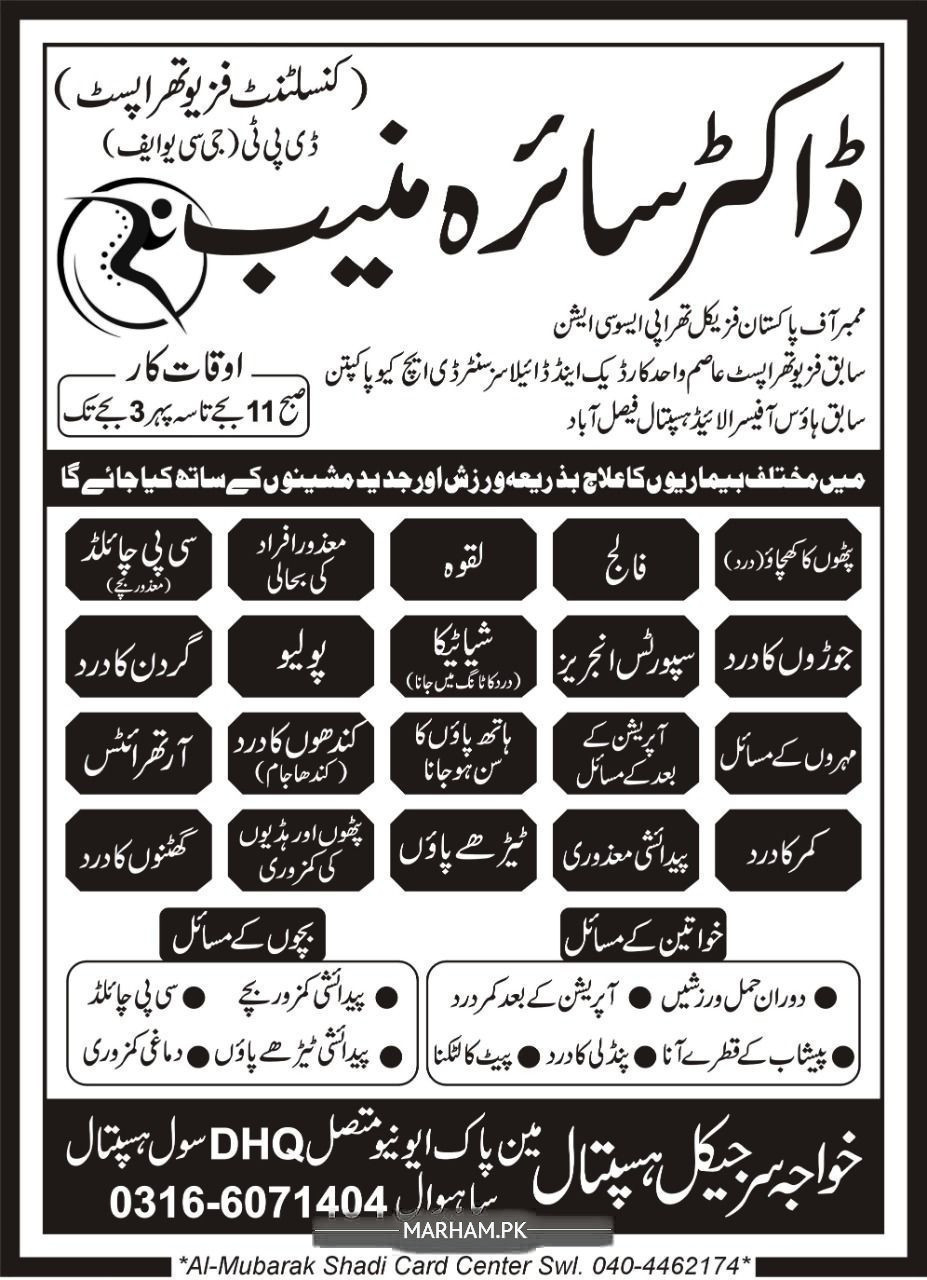 (کنسلٹنٹ فزیوتھراپسٹ)
ڈی پی ٹی (جی سی یو ایف)
ڈاکٹر سائرہ منیب
ممبر آف پاکستان فزیکل تھراپی ایسوسی ایشن
سابق فزیوتھراپسٹ عاصم واحد کارڈیک اینڈ ڈائیلاسز سنٹر ڈی ایچ کیو پاکپتن
سابق ہاؤس آفیسر الائیڈ ہسپتال فیصل آباد
اوقات کار
صبح 11 بجے تا سہ پہر 3 بجے تک
میں مختلف بیماریوں کا علاج بذریعہ ورزش اور جدید مشینوں کے ساتھ کیا جائے گا
پٹھوں کا کھچاؤ (درد)
فالج
لقوہ
معذور افراد
کی بحالی
سی پی چائلڈ
(معذور بچے)
جوڑوں کا درد
سپورٹس انجریز
شیاٹیکا
(درد کا ٹانگ میں جانا)
پولیو
گردن کا درد
مہروں کے مسائل
آپریشن کے
بعد کے مسائل
ہاتھ پاؤں کا
سن ہو جانا
کندھوں کا درد
(کندھا جام)
آرتھرائٹس
کمر کا درد
پیدائشی معذوری
ٹیڑھے پاؤں
پٹھوں اور ہڈیوں
کی کمزوری
گھٹنوں کا درد
خواتین کے مسائل
● دوران حمل ورزشیں ● آپریشن کے بعد کمر درد
● پیشاب کے قطرے آنا ● پنڈلی کا درد ● پیٹ کا لٹکنا
بچوں کے مسائل
● پیدائشی کمزور بچے ● سی پی چائلڈ
● پیدائشی ٹیڑھے پاؤں ● دماغی کمزوری
خواجہ سرجیکل ہسپتال
مین پاک ایونیو متصل DHQ سول ہسپتال
ساہیوال 0316-6071404
MARHAM.PK
*Al-Mubarak Shadi Card Center Swl. 040-4462174*